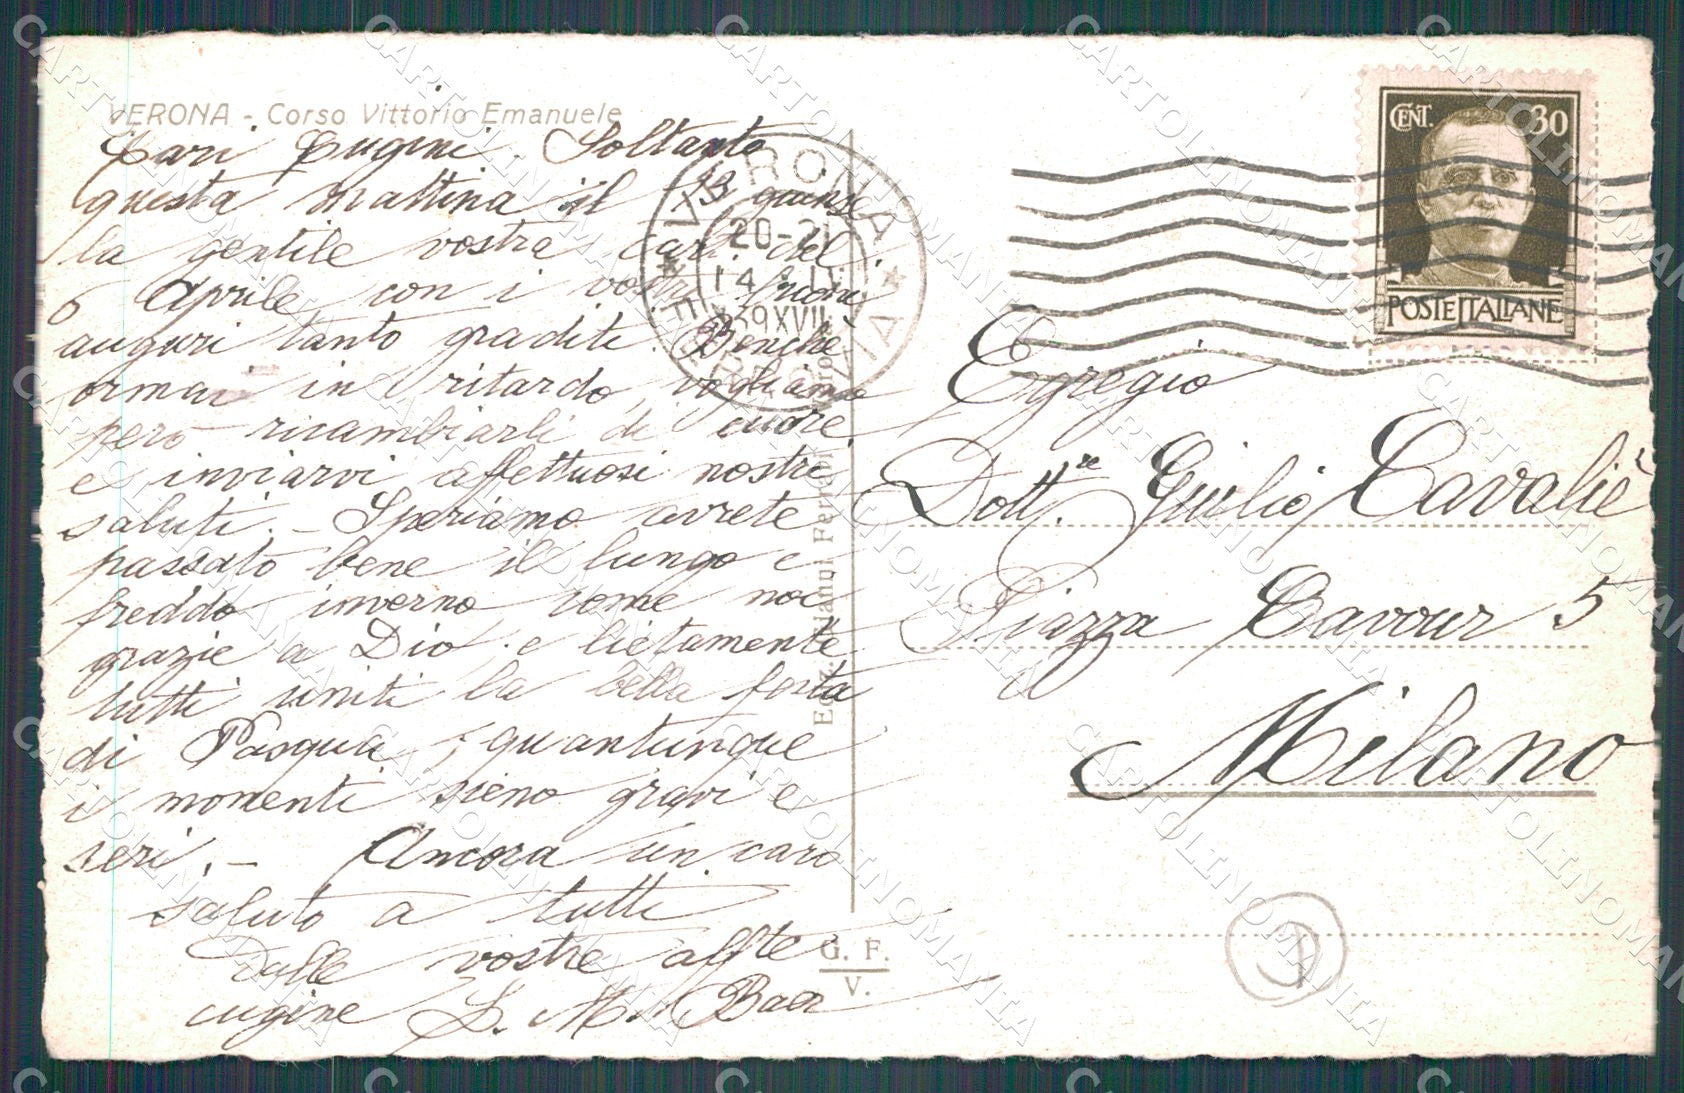 VERONA - Corso Vittorio Emanuele
Cari Cugini. Soltanto
questa mattina il 13 giunse
la gentile vostra cart. del
6 Aprile con i vostri buoni
auguri tanto graditi. Benchè
ormai in ritardo, vogliamo
però ricambiarli di cuore
e inviarvi affettuosi nostri
saluti. - Speriamo avrete
passato bene il lungo e
freddo inverno come noi
grazie a Dio. e lietamente
tutti uniti la bella festa
di Pasqua, quantunque
i momenti sieno gravi e
seri. - Ancora un caro
saluto a tutti
dalle vostre affte
cugine L. M. Baer
VERONA
20-21
14
39 XVII
FERROVIA
Ediz. Gianni Ferroni
G. F.
V.
CENT. 30
POSTE ITALIANE
Egregio
Dott.re Giulio Cavaliè
Piazza Cavour 5
Milano
CARTOLINOMANIA